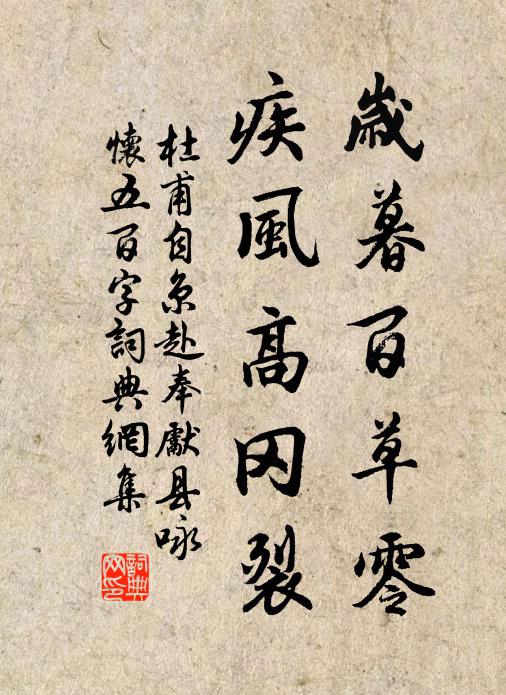 歲暮百草零
疾風高冈裂
杜甫自京赴奉獻县咏
懷五百字詞典網集
詞典网印